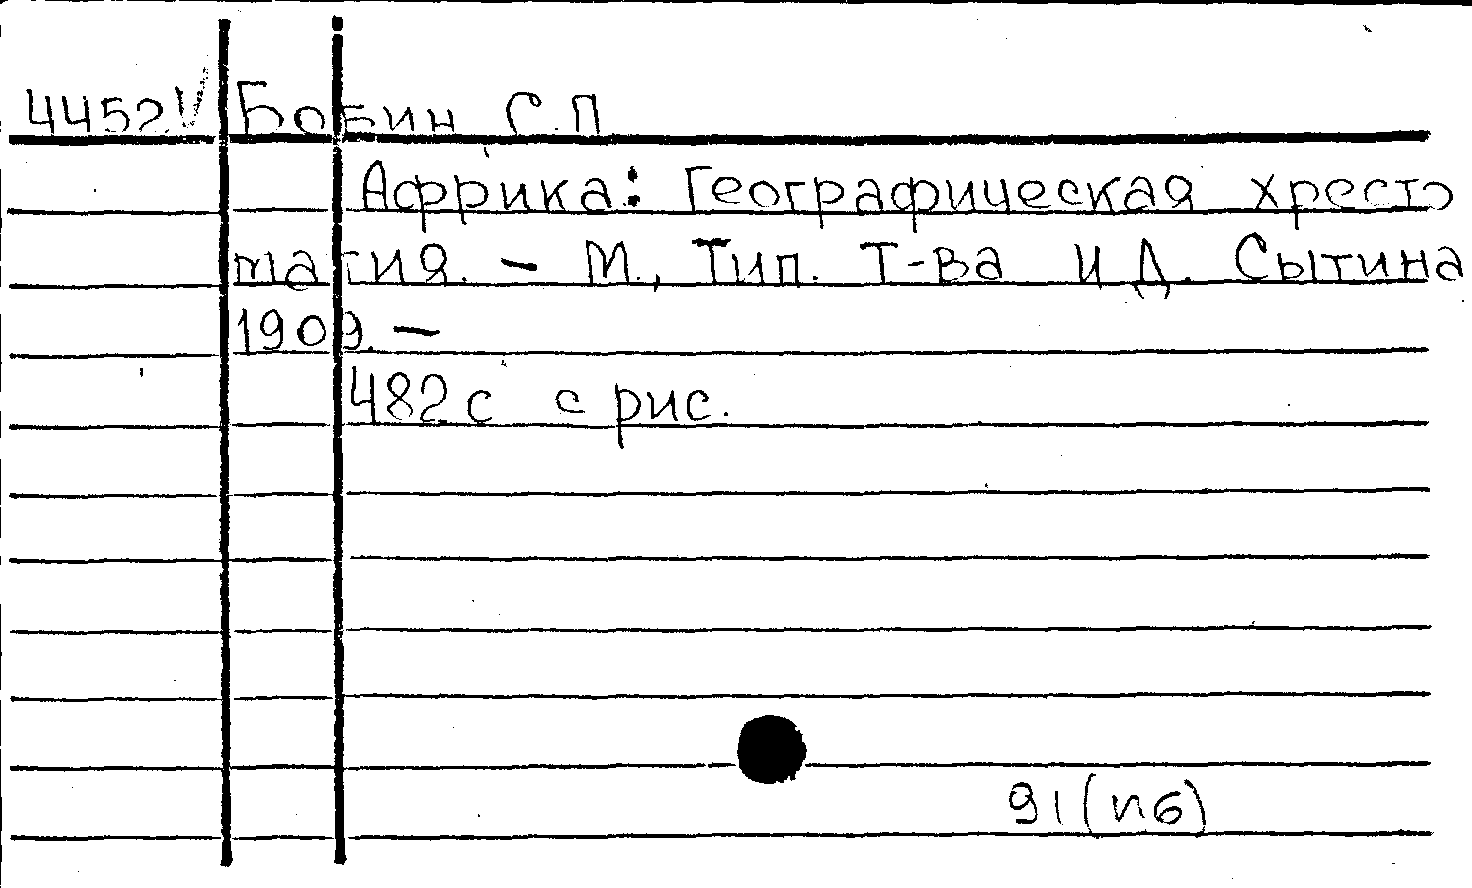 4452 V Бобин С.П
Африка: Географическая хресто
матия. – М., Тип. Т-ва И Д. Сытина
1909. –
482 с с рис.
91(п6)